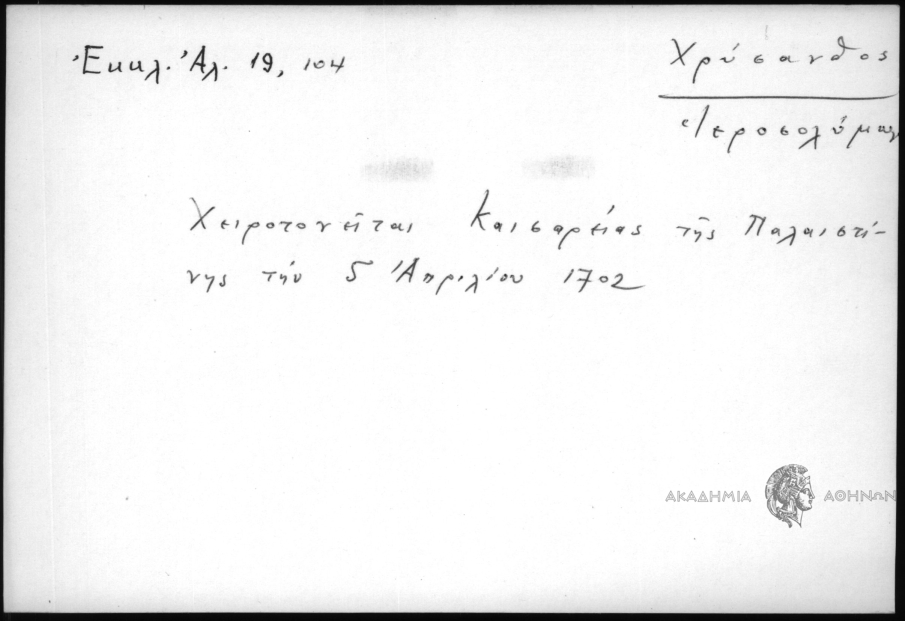 Ἐκκλ. Ἀλ. 19, 104
Χρύσανθος
Ἱεροσολύμων
Χειροτονεῖται Καισαρείας τῆς Παλαιστί-
νης τήν 5 Ἀπριλίου 1702
ΑΚΑΔΗΜΙΑ ΑΘΗΝΩΝ